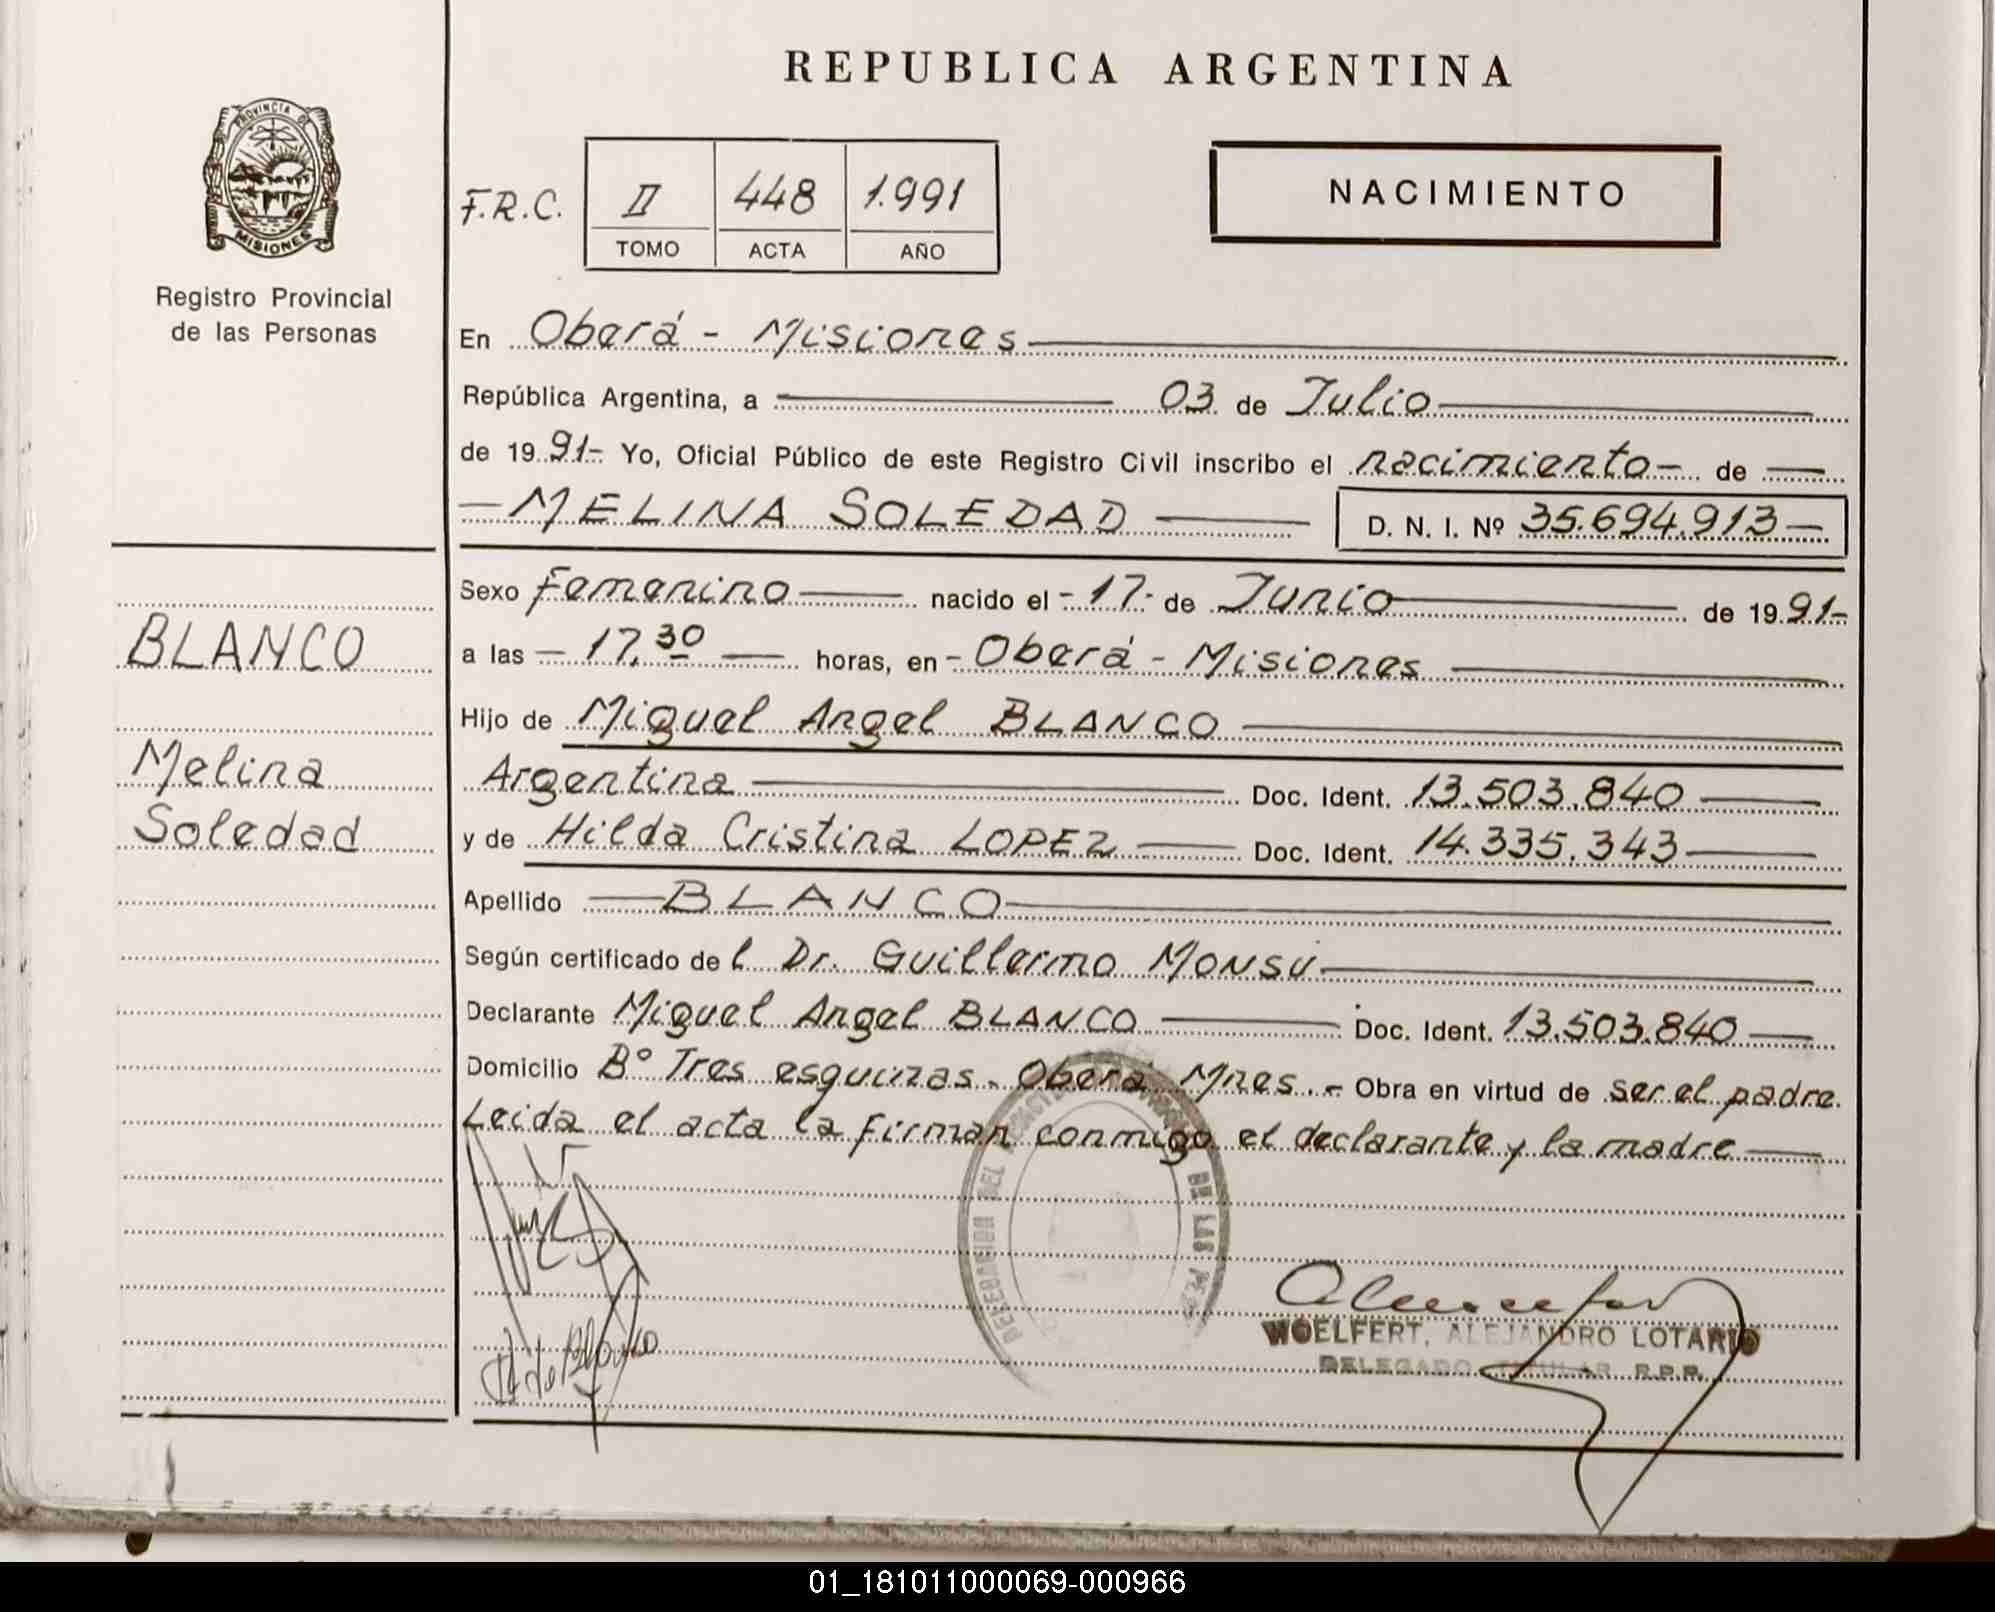 REPUBLICA ARGENTINA
PROVINCIA DE
MISIONES
Registro Provincial
de las Personas
NACIMIENTO
F.R.C. II 448 1.991
TOMO ACTA AÑO
En Oberá - Misiones
República Argentina, a 03 de Julio
de 1991- Yo, Oficial Público de este Registro Civil inscribo el nacimiento- de
- MELINA SOLEDAD D. N. I. Nº 35.694.913-
Sexo Femenino nacido el - 17- de Junio de 1991-
a las - 17,30 horas, en - Oberá - Misiones
Hijo de Miguel Angel BLANCO
Argentina Doc. Ident. 13.503.840
y de Hilda Cristina LOPEZ Doc. Ident. 14.335.343
Apellido BLANCO
Según certificado del Dr. Guillermo MONSU
Declarante Miguel Angel BLANCO Doc. Ident. 13.503.840
Domicilio Bº Tres esquinas - Obera Mnes.- Obra en virtud de ser el padre.
Leida el acta la firman conmigo el declarante y la madre
BLANCO
Melina
Soledad
DELEGACION DEL DE LAS
WOELFERT, ALEJANDRO LOTARIO
DELEGADO TITULAR R.P.P.
de Blanco
01_181011000069-000966